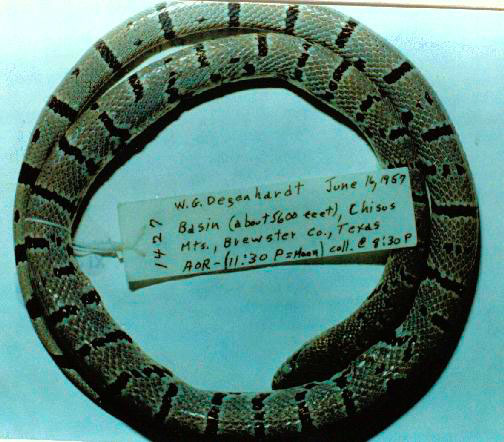 1427
W.G. Degenhardt June 16, 1967
Basin (about 5600 feet), Chisos
Mts., Brewster Co., Texas
AOR-(11:30 P=Moon) coll. @ 8:30 P